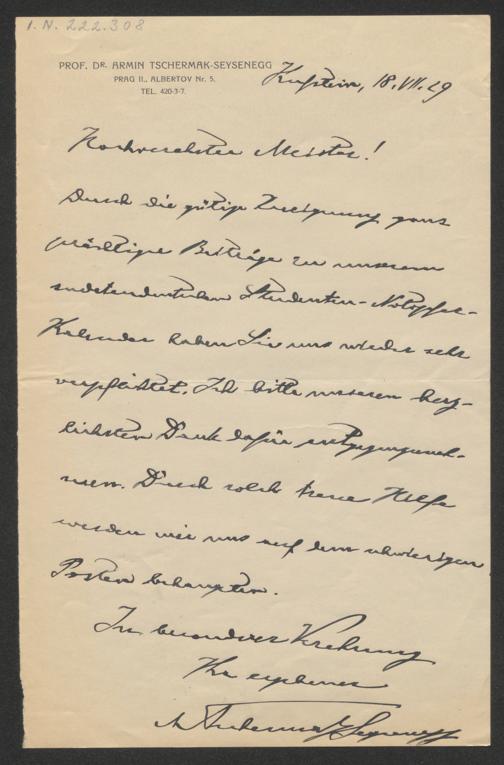 I.N. 222.308
PROF. DR. ARMIN TSCHERMAK-SEYSENEGG
PRAG II., ALBERTOV Nr. 5.
TEL. 420-3-7.
Kufstein, 18.VII.29
Hochverehrter Meister!
Durch die gütige Zueignung ganz
prächtiger Beiträge zu unserem
sudetendeutschen Studenten-Notopfer-
Kalender haben Sie uns wieder sehr
verpflichtet. Ich bitte unseren herz-
lichsten Dank dafür entgegenzuneh-
men. Durch solch treue Hilfe
werden wir uns auf dem schwierigen
Posten behaupten.
In besonderer Verehrung
Ihr ergebener
A Tschermak-Seysenegg